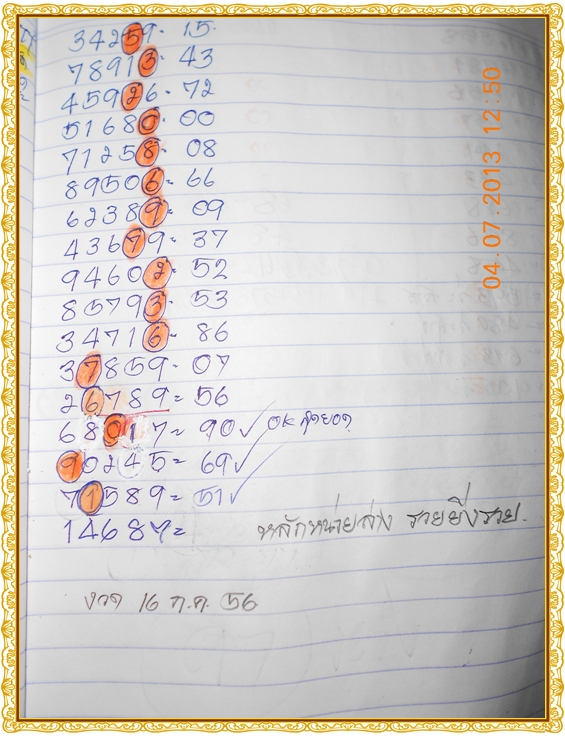 34259- 15.
78913- 43
45926- 72
51680- 00
71258- 08
89506- 66
62389- 09
43679- 37
94602- 52
85793- 53
34716- 86
37859- 07
26789= 56
68017= 90✓ OK สุดยอด
90245= 69✓
71589= 51✓
1468 =
หลักหน่วยล่าง รวยยิ่งรวย.
งวด 16 ก.ค. 56
04.07.2013 12:50